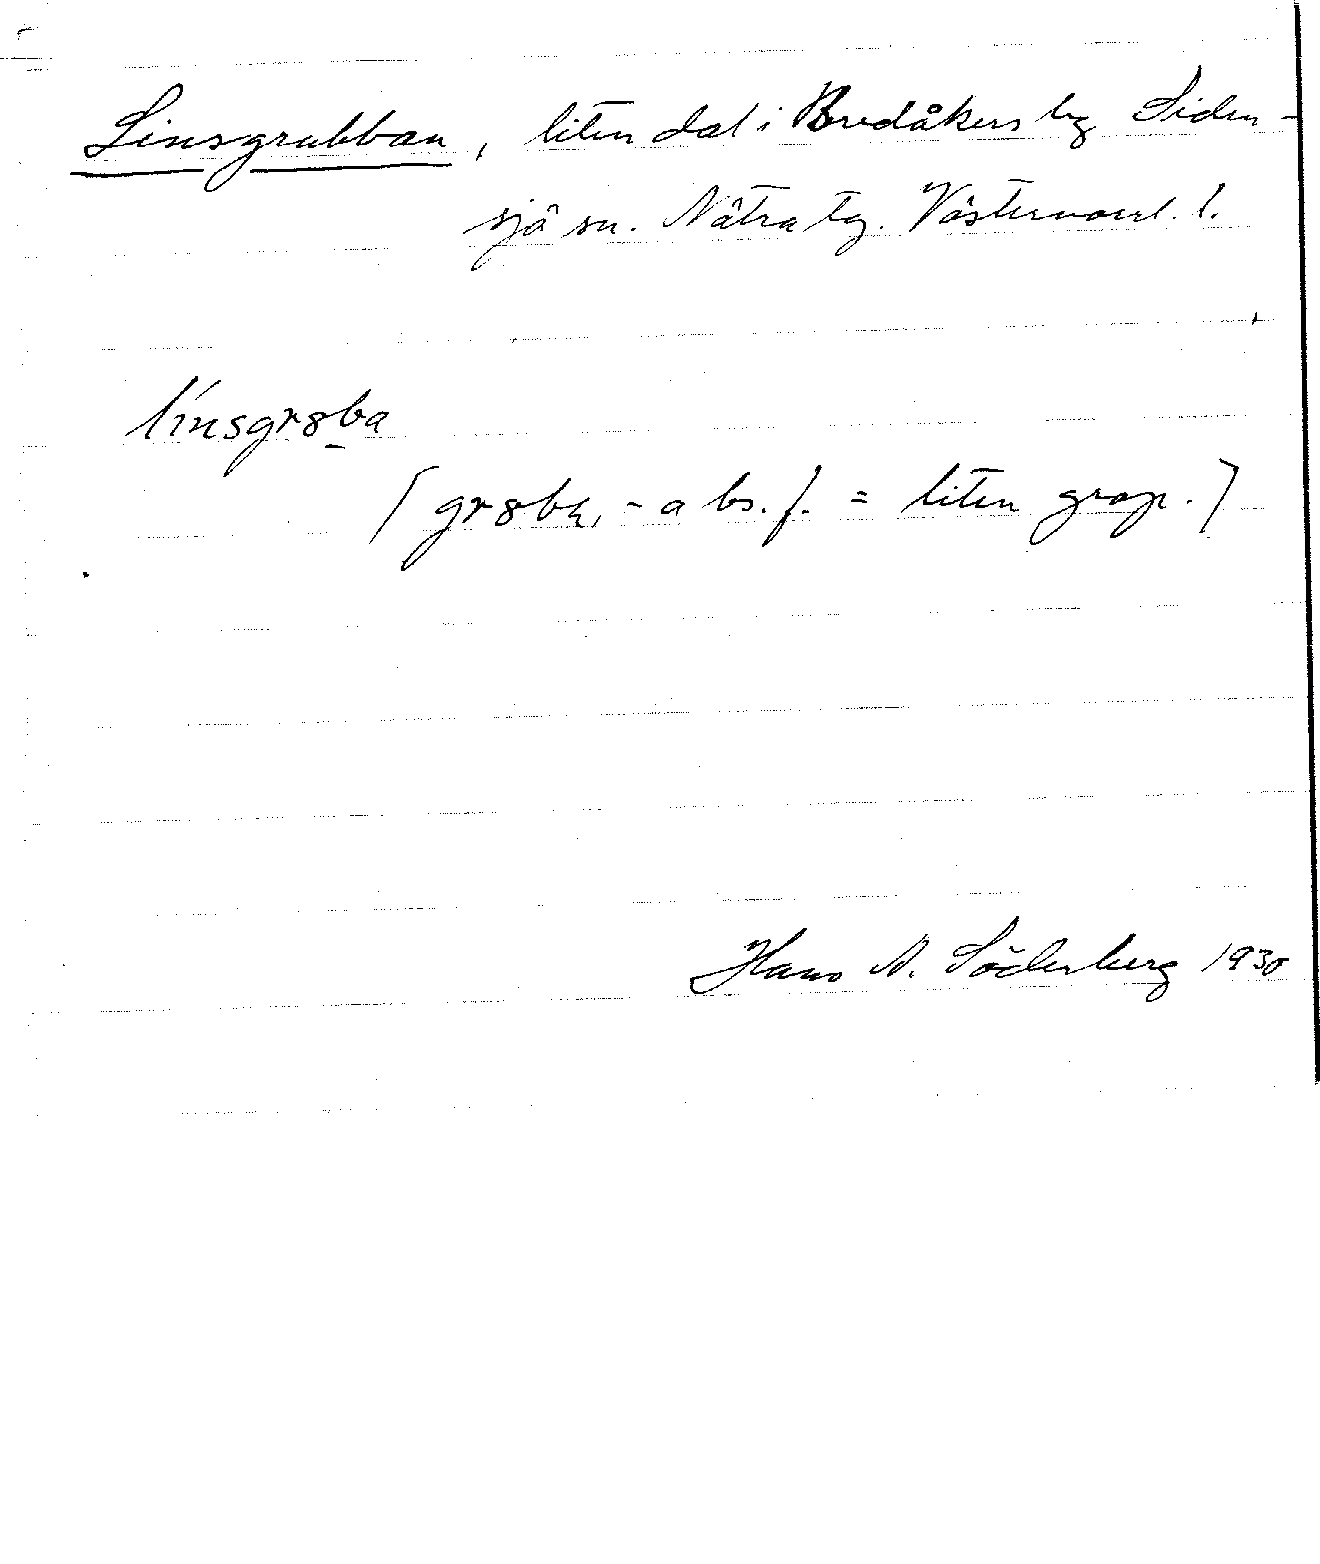 Linsgrubban, liten dal i Bredåkers by Siden-
sjö sn. Nätra tg. Västernorrl. l.
línsgr8ba
[gr8ba, -a bs. f. = liten grop.]
Hans N. Söderberg 1930